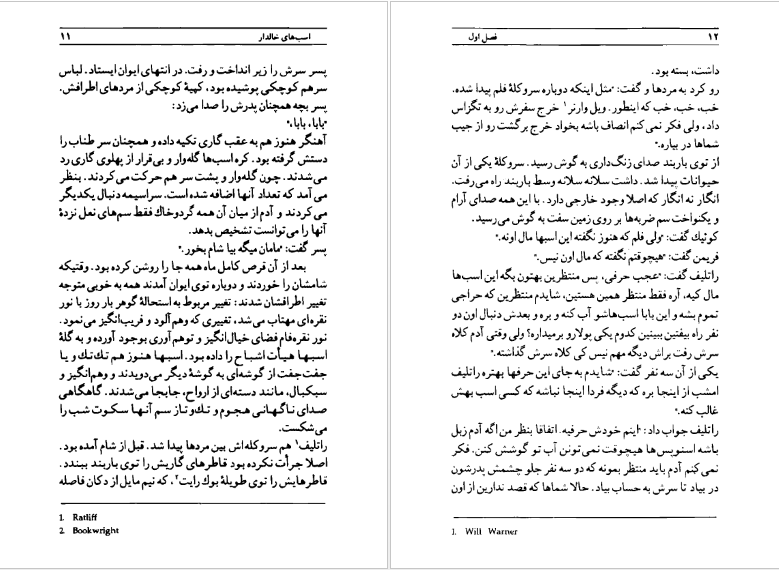 ۱۱ اسب‌های خالدار
پسر سرش را زیر انداخت و رفت. در انتهای ایوان ایستاد. لباس
سرهم کوچکی پوشیده بود، کپیهٔ کوچکی از مردهای اطرافش.
پسر بچه همچنان پدرش را صدا می‌زد:
«بابا، بابا،»
آهنگر هنوز هم به عقب گاری تکیه داده و همچنان سر طناب را
دستش گرفته بود. کره اسب‌ها گله‌وار و بی‌قرار از پهلوی گاری رد
می‌شدند. چون گله‌وار و پشت سر هم حرکت می‌کردند. بنظر
می‌آمد که تعداد آنها اضافه شده است. سراسیمه دنبال یکدیگر
می‌کردند و آدم از میان آن همه گردوخاك فقط سم‌های نعل نزدهٔ
آنها را می‌توانست تشخیص بدهد.
پسر گفت: «مامان میگه بیا شام بخور.»
بعد از آن قرص کامل ماه همه جا را روشن کرده بود. وقتیکه
شامشان را خوردند و دوباره توی ایوان آمدند همه به خوبی متوجه
تغییر اطرافشان شدند: تغییر مربوط به استحالهٔ گوهر بار روز با نور
نقره‌ای مهتاب می‌شد، تغییری که وهم‌آلود و فریب‌انگیز می‌نمود.
نور نقره‌فام فضای خیال‌انگیز و توهم‌آوری بوجود آورده و به گلهٔ
اسبها هیأت اشباح را داده بود. اسبها هنوز هم تك‌تك و یا
جفت‌جفت از گوشه‌ای به گوشهٔ دیگر می‌دویدند و وهم‌انگیز و
سبکبال، مانند دسته‌ای از ارواح، جابجا می‌شدند. گاهگاهی
صدای ناگهانی هجوم و تك‌وتاز سم آنها سکوت شب را
می‌شکست.
راتلیف۱ هم سروکله‌اش بین مردها پیدا شد. قبل از شام آمده بود.
اصلا جرأت نکرده بود قاطرهای گاریش را توی باربند ببندد.
قاطرهایش را توی طویلهٔ بوك رایت۲، که نیم مایل از دکان فاصله
1. Ratliff
2. Bookwright
۱۲ فصل اول
داشت، بسته بود.
رو کرد به مردها و گفت: «مثل اینکه دوباره سروکلهٔ فلم پیدا شده.
خب، خب، خب که اینطور. ویل وارنر۱ خرج سفرش رو به تگزاس
داد، ولی فکر نمی‌کنم انصاف باشه بخواد خرج برگشت رو از جیب
شماها در بیاره.»
از توی باربند صدای زنگ‌داری به گوش رسید. سروکلهٔ یکی از آن
حیوانات پیدا شد. داشت سلانه سلانه وسط باربند راه می‌رفت.
انگار نه انگار که اصلا وجود خارجی دارد. با این همه صدای آرام
و یکنواخت سم ضربه‌ها بر روی زمین سفت به گوش می‌رسید.
کوئیك گفت: «ولی فلم که هنوز نگفته این اسبها مال اونه.»
فریمن گفت: «هیچوقتم نگفته که مال اون نیس.»
راتلیف گفت: «عجب حرفی، پس منتظرین بهتون بگه این اسب‌ها
مال کیه، آره فقط منتظر همین هستین، شایدم منتظرین که حراجی
تموم بشه و این بابا اسب‌هاشو آب کنه و بره و بعدش دنبال اون دو
نفر راه بیفتین ببینین کدوم یکی پولارو برمیداره؟ ولی وقتی آدم کلاه
سرش رفت براش دیگه مهم نیس کی کلاه سرش گذاشته.»
یکی از آن سه نفر گفت: «شایدم به جای این حرفها بهتره راتلیف
امشب از اینجا بره که دیگه فردا اینجا نباشه که کسی اسب بهش
غالب کنه.»
راتلیف جواب داد: «اینم خودش حرفیه. اتفاقا بنظر من اگه آدم زبل
باشه اسنوپس‌ها هیچوقت نمی‌تونن آب تو گوشش کنن. فکر
نمی‌کنم آدم باید منتظر بمونه که دو سه نفر جلو چشمش پدرشون
در بیاد تا سرش به حساب بیاد. حالا شماها که قصد ندارین از اون
1. Will Warner